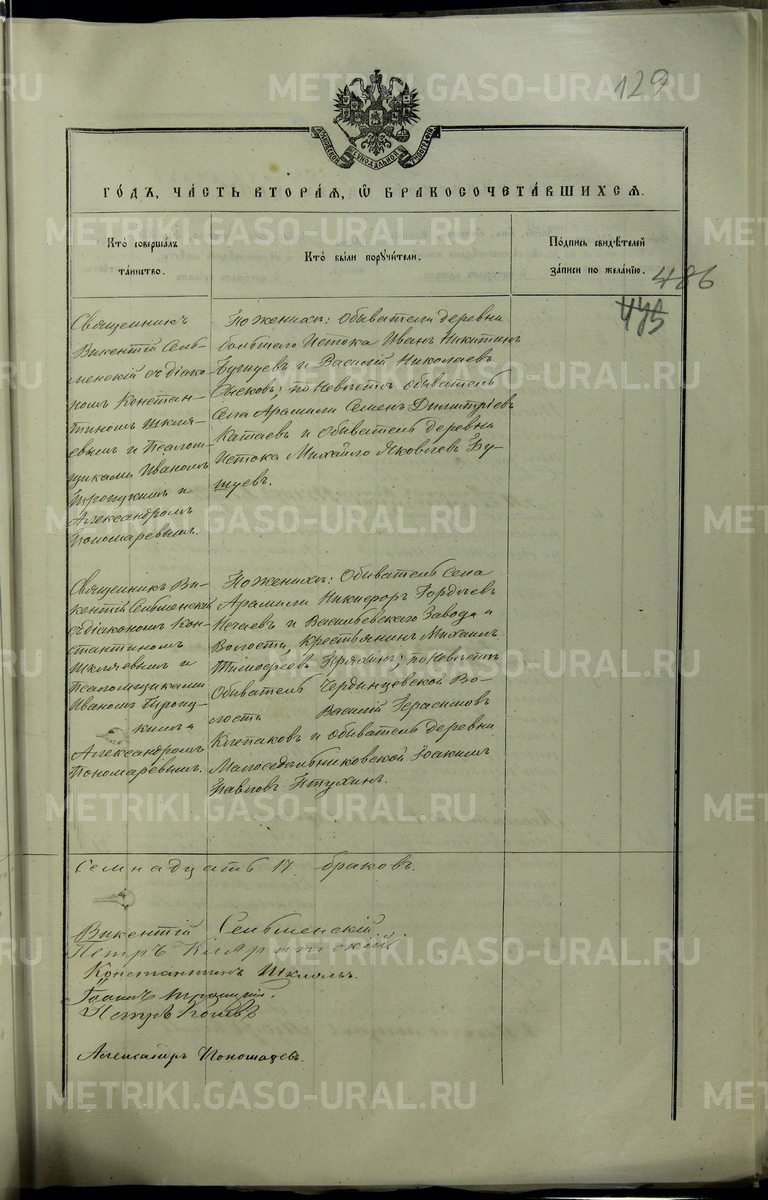 129
МОСКОВСКОЙ СѴНОДАЛЬНОЙ ТѴПОГРАФІИ
ГО́ДЪ, ЧА́СТЬ ВТОРА́Я, Ѡ БРАКОСОЧЕТА́ВШИХСЯ.
Кто̀ соверша́лъ
та́инство.
Кто̀ бы́ли поручи́тели.
По́дпись свидѣ́телей
за́писи по жела́нію.
486
475
Священникъ
Викентій Сель-
менскій съ діако-
номъ Констан-
тиномъ Шкля-
евымъ и Псалом-
щиками Иваномъ
и
Александромъ
Пономаревымъ.
По женихѣ: Обыватели деревни
Большаго Истока Иванъ Никитинъ
Бушуевъ и Василій Николаевъ
по невѣстѣ обыватель
Села Арамили Семенъ Димитріевъ
Катаевъ и обыватель деревни
Истока Михайло Яковлевъ Бу-
шуевъ.
Священникъ Ви-
кентій Сельменскій
съ діакономъ Кон-
стантиномъ
Шкляевымъ и
Псаломщиками
Иваномъ
и
Александромъ
Пономаревымъ.
По женихѣ: Обыватель Села
Арамили Никифоръ Гордѣевъ
Нечаевъ и Васильевскаго Завода и
Волости, Крестьянинъ Михаилъ
Тимофеевъ по невѣстѣ
Обыватель Чердынцевской Во-
лости Василій Герасимовъ
и обыватель деревни
Малоседельниковской Іоакимъ
Павловъ Птухинъ.
Семнадцать 17 браковъ.
Викентій Сельменскій.
Петръ
Константинъ
Іоаннъ
Петръ
Александръ
METRIKI.GASO-URAL.RU